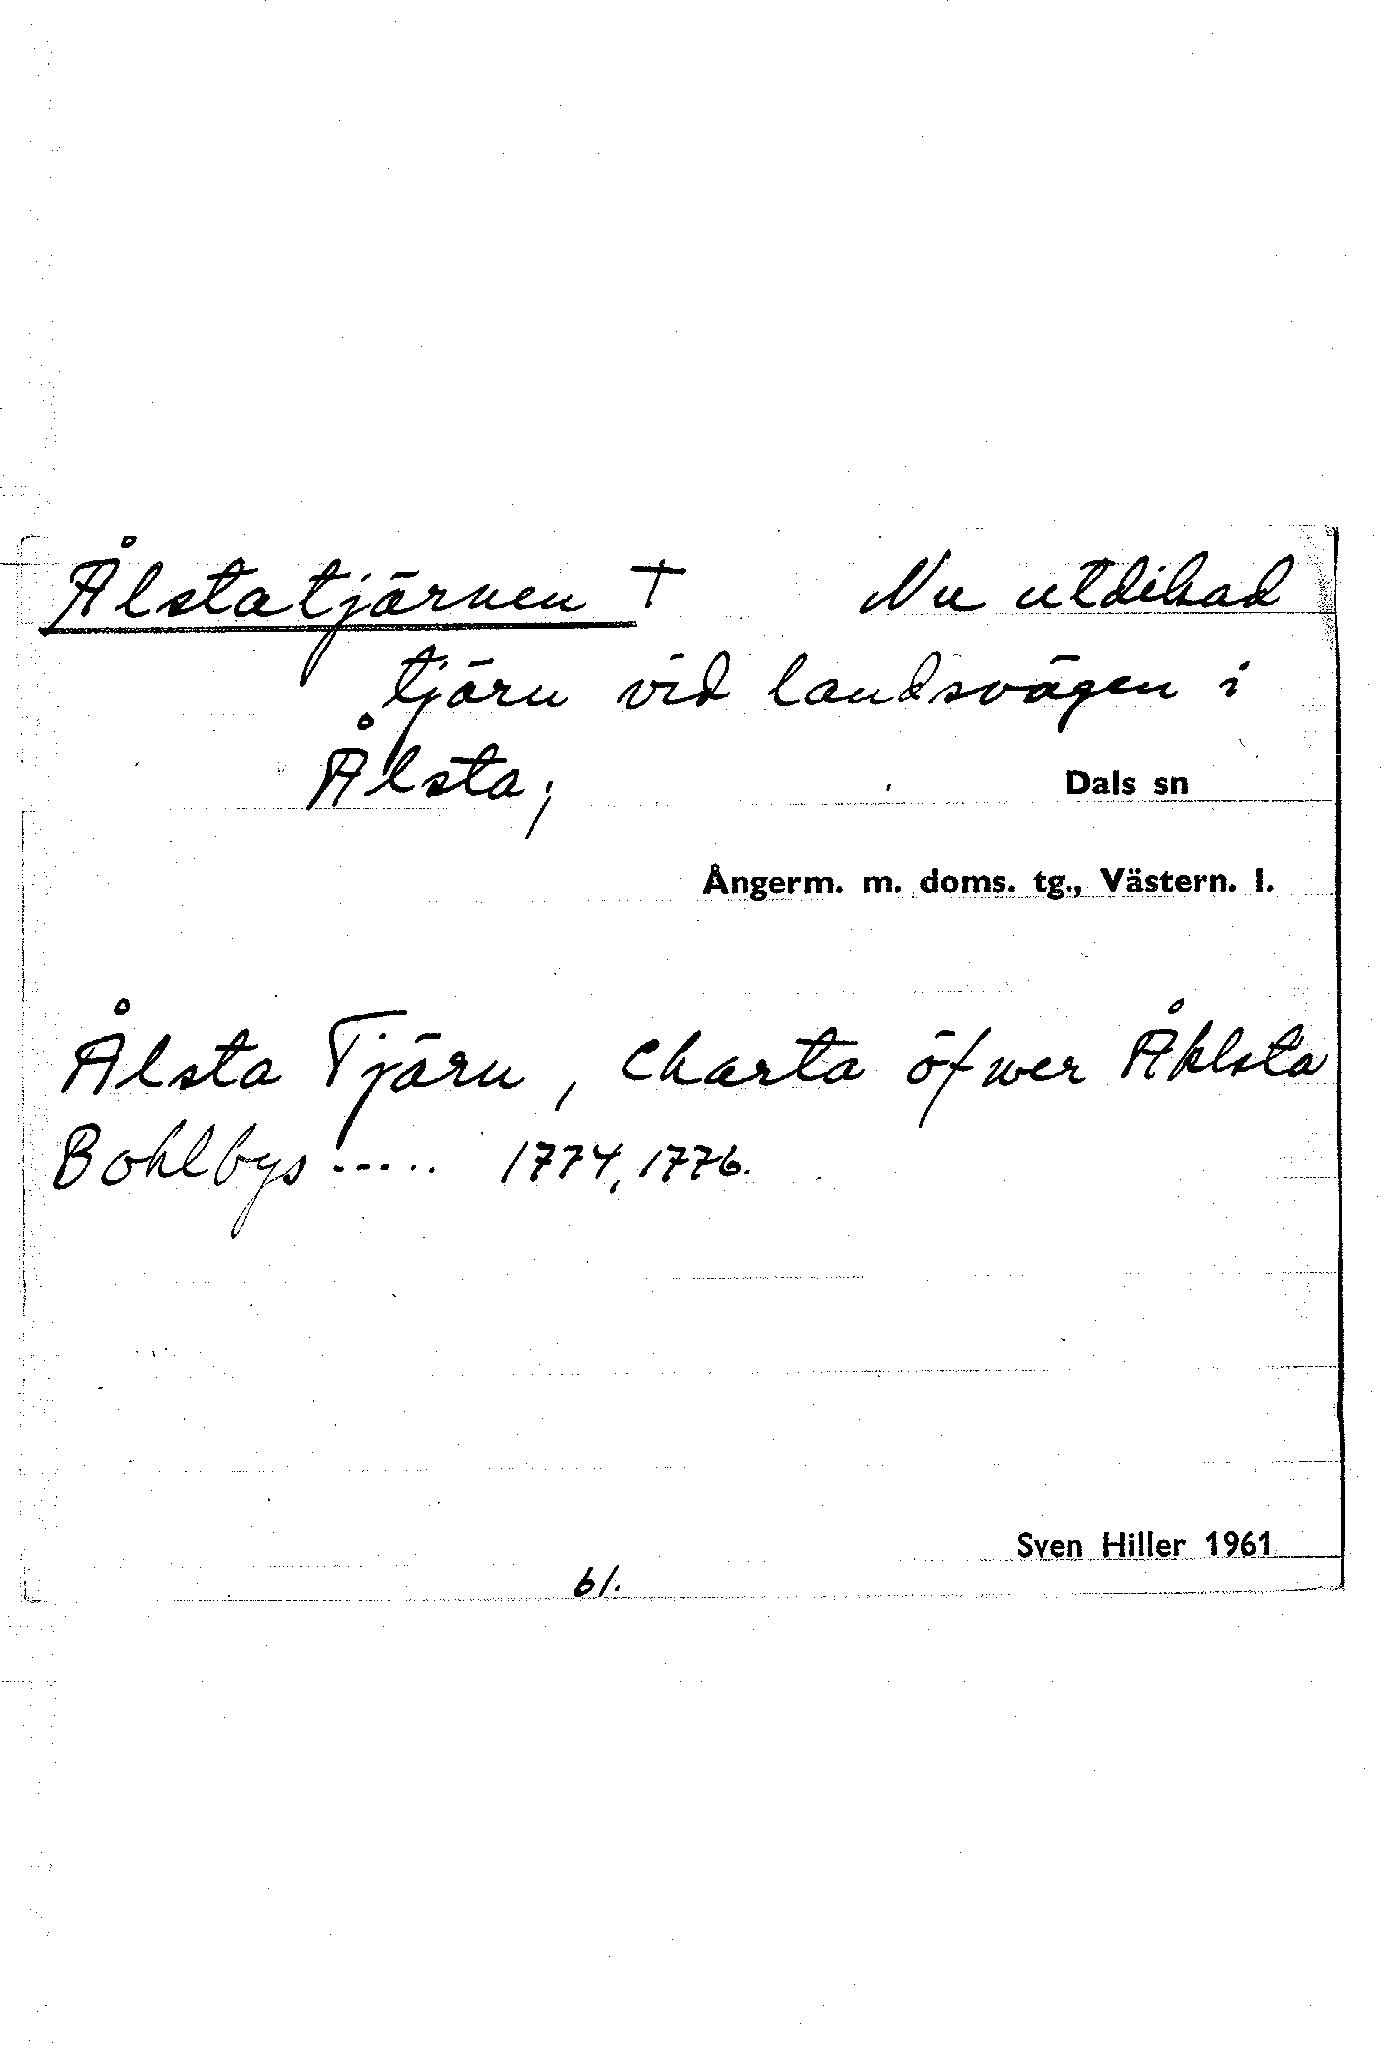 Ålstatjärnen † Nu utdikad
tjärn vid landsvägen i
Ålsta;
Dals sn
Ångerm. m. doms. tg., Västern. l.
Ålsta Tjärn, Charta öfwer Åhlsta
Bohlbys ..... 1774, 1776.
Sven Hiller 1961
61.